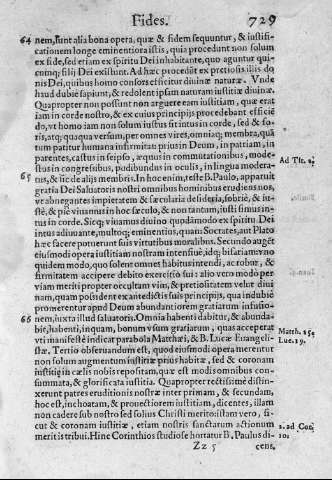 Fides. 729
64 nem, sunt alia bona opera, quæ & fidem sequuntur, & iustifi-
cationem longe eminentiora istis, quia procedunt non solum
ex fide, sed etiam ex spiritu Dei inhabitante, quo aguntur qui-
cunque filij Dei existunt. Ad hæc procedūt ex pretiosis illis do
nis Dei, quibus homo consors efficitur diuinæ naturæ. Vnde
haud dubiè sapiunt, & redolent ipsam naturam iustitiæ diuinæ.
Quapropter non possunt non arguere eam iustitiam, quæ erat
iam in corde nostro, & ex cuius principijs procedebant efficiē
do, vt homo iam non solum iustus sit intus in corde, sed & fo-
ris, atq; quaqua versum, per omnes vires, omniaq; membra, quā
tum patitur humana infirmitas: prius in Deum, in patriam, in
parentes, castus in seipso, æquus in commutationibus, mode-
stus in congressibus, pudibundus in oculis, in lingua modera-
65 tus, & sic de alijs membris. In hoc enim, teste B. Paulo, apparuit
Ad Tit. 2.
gratia Dei Saluatoris nostri omnibus hominibus erudiens nos,
vt abnegantes impietatem & sæcularia desideria, sobriè, & iu-
stè, & piè viuamus in hoc sæculo, & non tantum, iusti simus in-
tus in corde. Sicq; viuamus diuino quodāmodo ex spiritu Dei
intus adiuuante, multoq; eminentius, quam Socrates, aut Plato
hæc facere potuerunt suis virtutibus moralibus. Secundo augēt
eiusmodi opera iustitiam nostram intensiuè, idq; bifariam: vno
quidem modo, quo solent omnes habitus intendi, ac robur, &
firmitatem accipere debito exercitio sui: alio vero modo per
viam meriti propter occultam vim, & pretiositatem velut diui
nam, quam possident ex antedictis suis principijs, qua indubiè
promerentur apud Deum abundantiorem gratiarum infusio-
66 nem, iuxta illud saluatoris. Omni habenti dabitur, & abunda-
bit, habenti, inquam, bonum vsum gratiarum, quas acceperat
vti manifestè indicat parabola Matthæi, & B. Lucæ Euangeli-
Matth. 25.
Luc. 19.
stæ. Tertio obseruandum est, quod eiusmodi opera merentur
non solum augmentum iustitiæ prius habitæ, sed & coronam
iustitiæ in cælis nobis repositam, quæ est modis omnibus con-
summata, & glorificata iustitia. Quapropter rectissimè distin-
xerunt patres eruditionis nostræ inter primam, & secundam,
hoc est, inchoatam, & prouectiorem iustitiam, dicentes, illam
non cadere sub nostro sed solius Christi merito: istam vero, si-
cut & coronam iustitiæ, etiam nostris sanctarum actionum
2. ad Cor.
meritis tribui. Hinc Corinthios studiose hortatur B. Paulus di-
10.
Zz 5 cens,